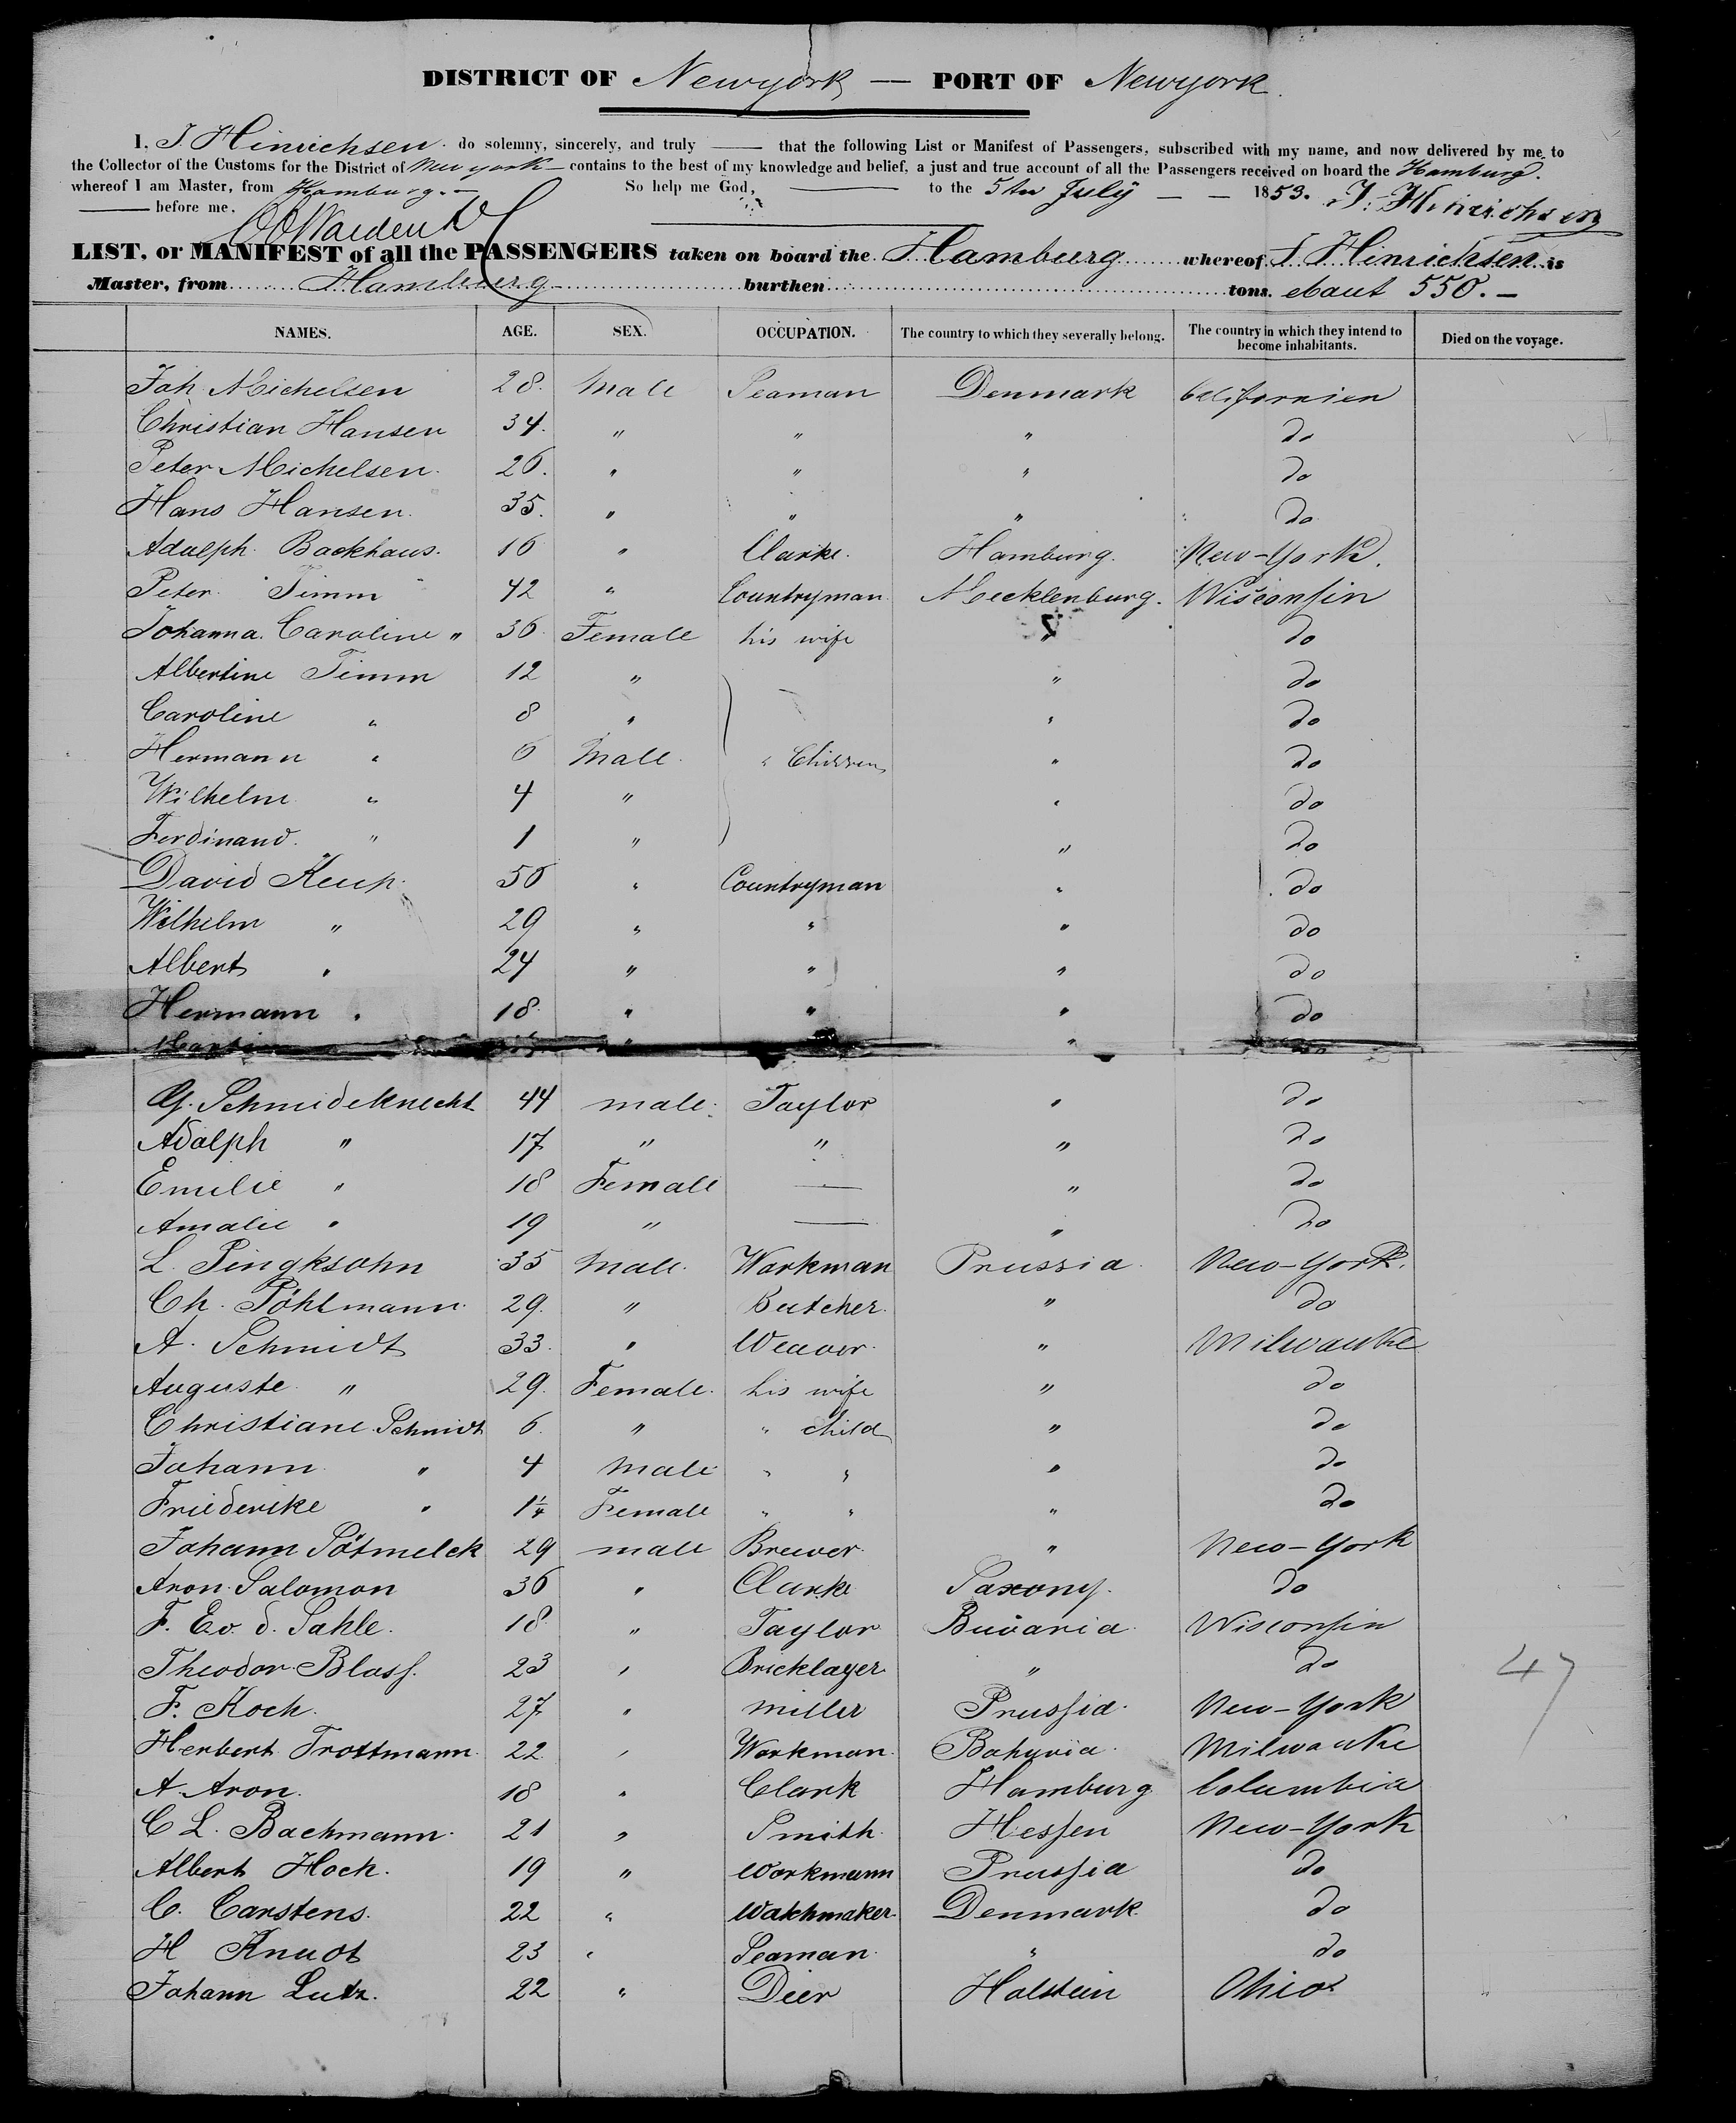 DISTRICT OF Newyork — PORT OF Newyork.
I, J. Hinrichsen do solemny, sincerely, and truly —— that the following List or Manifest of Passengers, subscribed with my name, and now delivered by me to
the Collector of the Customs for the District of New york — contains to the best of my knowledge and belief, a just and true account of all the Passengers received on board the Hamburg.
whereof I am Master, from Hamburg. — So help me God, —— to the 5th July — — 1853. J. Hinrichsen
—— before me.
LIST, or MANIFEST of all the PASSENGERS taken on board the Hamburg whereof J. Hinrichsen is
Master, from Hamburg burthen tons. about 550. —
NAMES. AGE. SEX. OCCUPATION. The country to which they severally belong. The country in which they intend to become inhabitants. Died on the voyage.
Joh. Michelsen 28. Male Seaman Denmark Californien
Christian Hansen 34. " " " do
Peter Michelsen. 26. " " " do
Hans Hansen. 35. " " " do
Adolph. Backhaus. 16 " Clarke. Hamburg. New-York.
Peter Timm 42 " Countryman Mecklenburg. Wisconsin
Johanna. Caroline " 36 Female his wife " do
Albertine Timm 12 " " do
Caroline " 8 " " do
Hermann " 6 Male. " Children " do
Wilhelm " 4 " " do
Ferdinand. " 1 " " do
David Keup. 50 " Countryman " do
Wilhelm " 29 " " " do
Albert " 24 " " " do
Hermann " 18. " " " do
" " do
G. Schmideknecht 44 male. Taylor " do
Adolph " 17 " " " do
Emilie " 18 Female — " do
Amalie " 19 " — " do
L. Pingksohn 35 Male. Workman Prussia. New-York.
Ch. Pöhlmann. 29. " Butcher. " do
A. Schmidt 33. " Weaver. " Milwaukee
Auguste " 29. Female. his wife " do
Christiane Schmidt 6. " " child " do
Johann " 4 Male " " " do
Friederike " 1¼ Female " " " do
Johann Pötmelck 29 male Brewer. " New-York
Aron Salomon 36 " Clarke Saxony. do
F. Ev. d. Sahle. 18 " Taylor Bavaria. Wisconsin
Theodor Blass. 23 " Bricklayer " do
F. Koch. 27 " Miller Prussia. New-York
Herbert Trottmann. 22 " Workman. Bahavia. Milwaukee
A. Aron. 18 " Clark Hamburg Columbia
C L. Bachmann. 21 " Smith. Hessen New-York
Albert Hock. 19 " Workmann Prussia do
C. Carstens. 22 " Watchmaker Denmark. do
H Knudt 23 " Seaman. " do
Johann Lutz. 22 " Dier Holstein Ohio
47